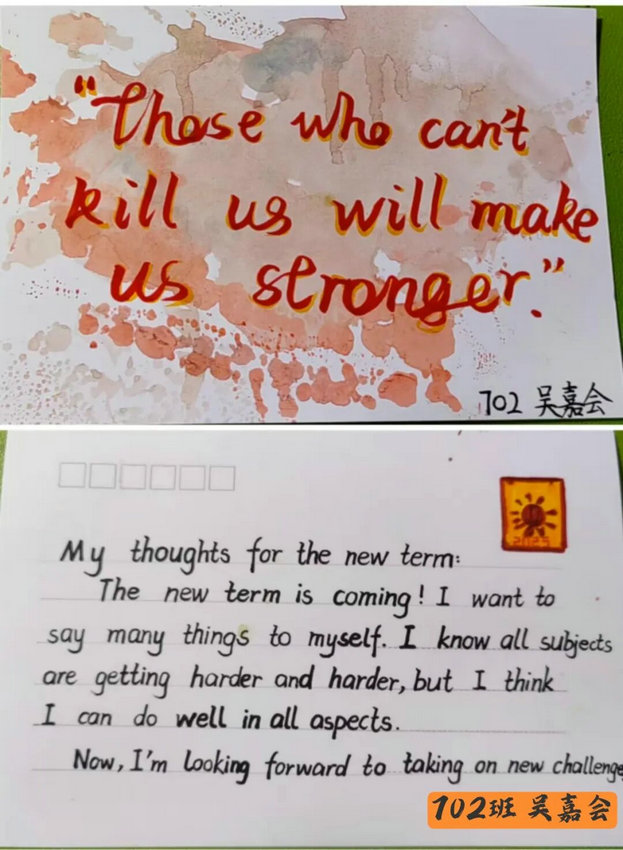 "Those who can't
kill us will make
us stronger."
702 吴嘉会
2025
My thoughts for the new term:
The new term is coming! I want to
say many things to myself. I know all subjects
are getting harder and harder, but I think
I can do well in all aspects.
Now, I'm looking forward to taking on new challenge
702班 吴嘉会